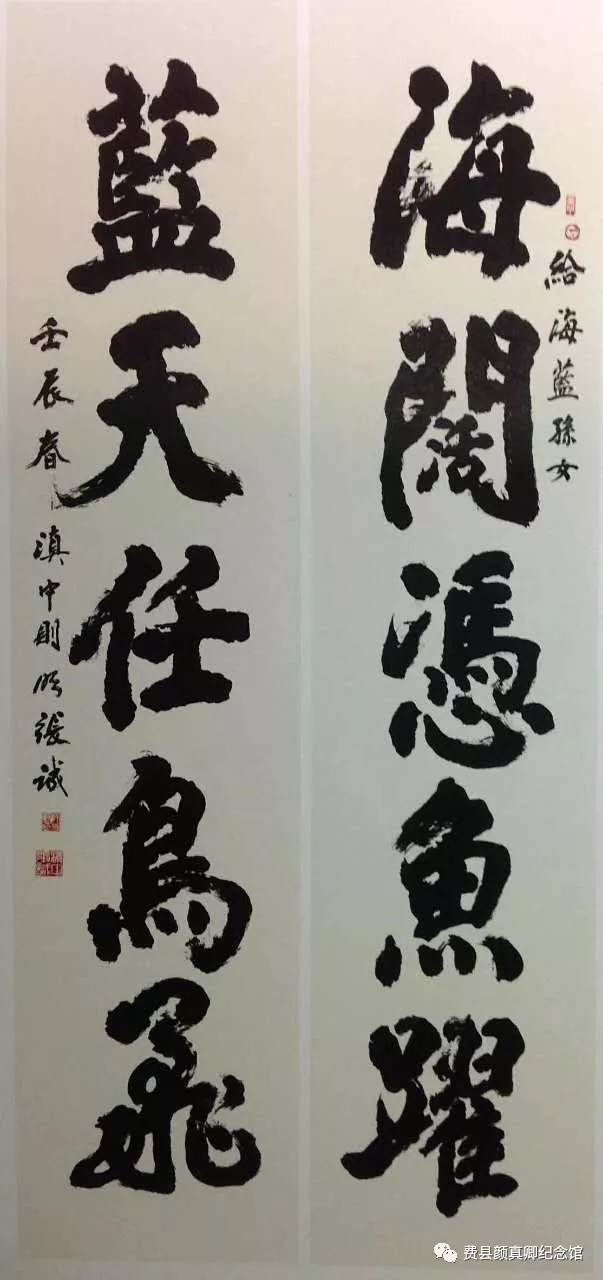 海闊憑魚躍
給海藍孫女
藍天任鳥飛
壬辰春
張誠
费县颜真卿纪念馆